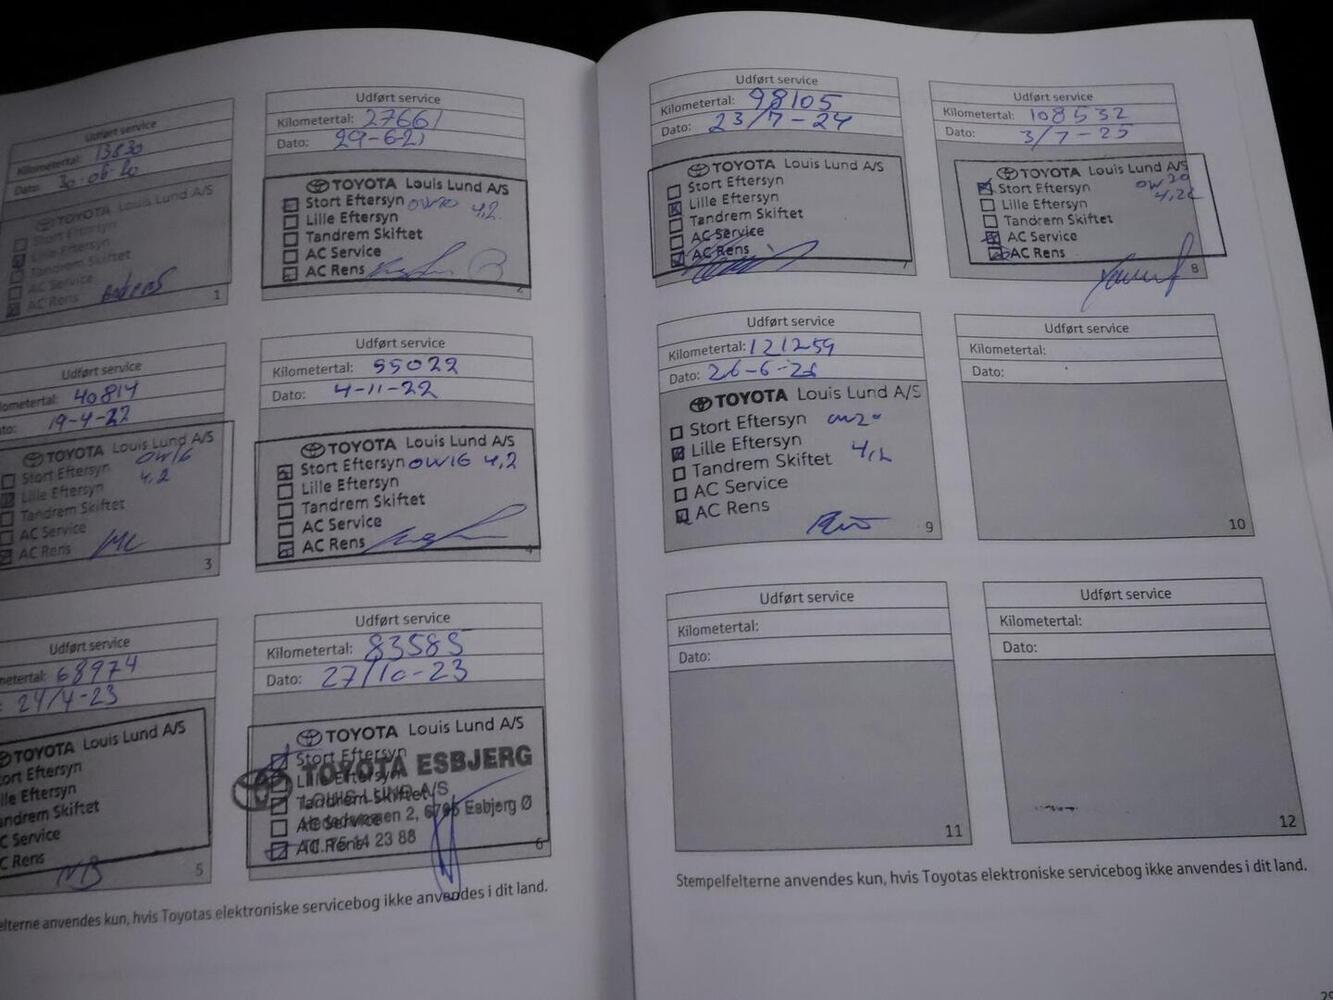 Udført service
Kilometertal: 13830
Dato: 30-06-20
TOYOTA Louis Lund A/S
Stort Eftersyn
Lille Eftersyn
Tandrem Skiftet
AC Service
AC Rens
1
Udført service
Kilometertal: 27661
Dato: 29-6-21
TOYOTA Louis Lund A/S
Stort Eftersyn OW16 4,2
Lille Eftersyn
Tandrem Skiftet
AC Service
AC Rens
2
Udført service
ometertal: 40814
to: 19-4-22
TOYOTA Louis Lund A/S
Stort Eftersyn OW16
Lille Eftersyn 4,2
Tandrem Skiftet
AC Service
AC Rens
3
Udført service
Kilometertal: 55022
Dato: 4-11-22
TOYOTA Louis Lund A/S
Stort Eftersyn OW16 4,2
Lille Eftersyn
Tandrem Skiftet
AC Service
AC Rens
4
Udført service
metertal: 68974
: 24/4-23
TOYOTA Louis Lund A/S
ort Eftersyn
lle Eftersyn
andrem Skiftet
C Service
C Rens
NB
5
Udført service
Kilometertal: 83585
Dato: 27/10-23
TOYOTA Louis Lund A/S
Stort Eftersyn
Lille Eftersyn
Tandrem Skiftet
AC Service
AC Rens
TOYOTA ESBJERG
LOUIS LUND A/S
2, 6705 Esbjerg Ø
75 14 23 88
6
elterne anvendes kun, hvis Toyotas elektroniske servicebog ikke anvendes i dit land.
Udført service
Kilometertal: 98105
Dato: 23/7-24
TOYOTA Louis Lund A/S
Stort Eftersyn
Lille Eftersyn
Tandrem Skiftet
AC Service
AC Rens
7
Udført service
Kilometertal: 108532
Dato: 3/7-25
TOYOTA Louis Lund A/S
Stort Eftersyn OW20
Lille Eftersyn 4,2L
Tandrem Skiftet
AC Service
AC Rens
8
Udført service
Kilometertal: 121259
Dato: 26-6-26
TOYOTA Louis Lund A/S
Stort Eftersyn OW20
Lille Eftersyn
Tandrem Skiftet 4,2
AC Service
AC Rens
9
Udført service
Kilometertal:
Dato:
10
Udført service
Kilometertal:
Dato:
11
Udført service
Kilometertal:
Dato:
12
Stempelfelterne anvendes kun, hvis Toyotas elektroniske servicebog ikke anvendes i dit land.